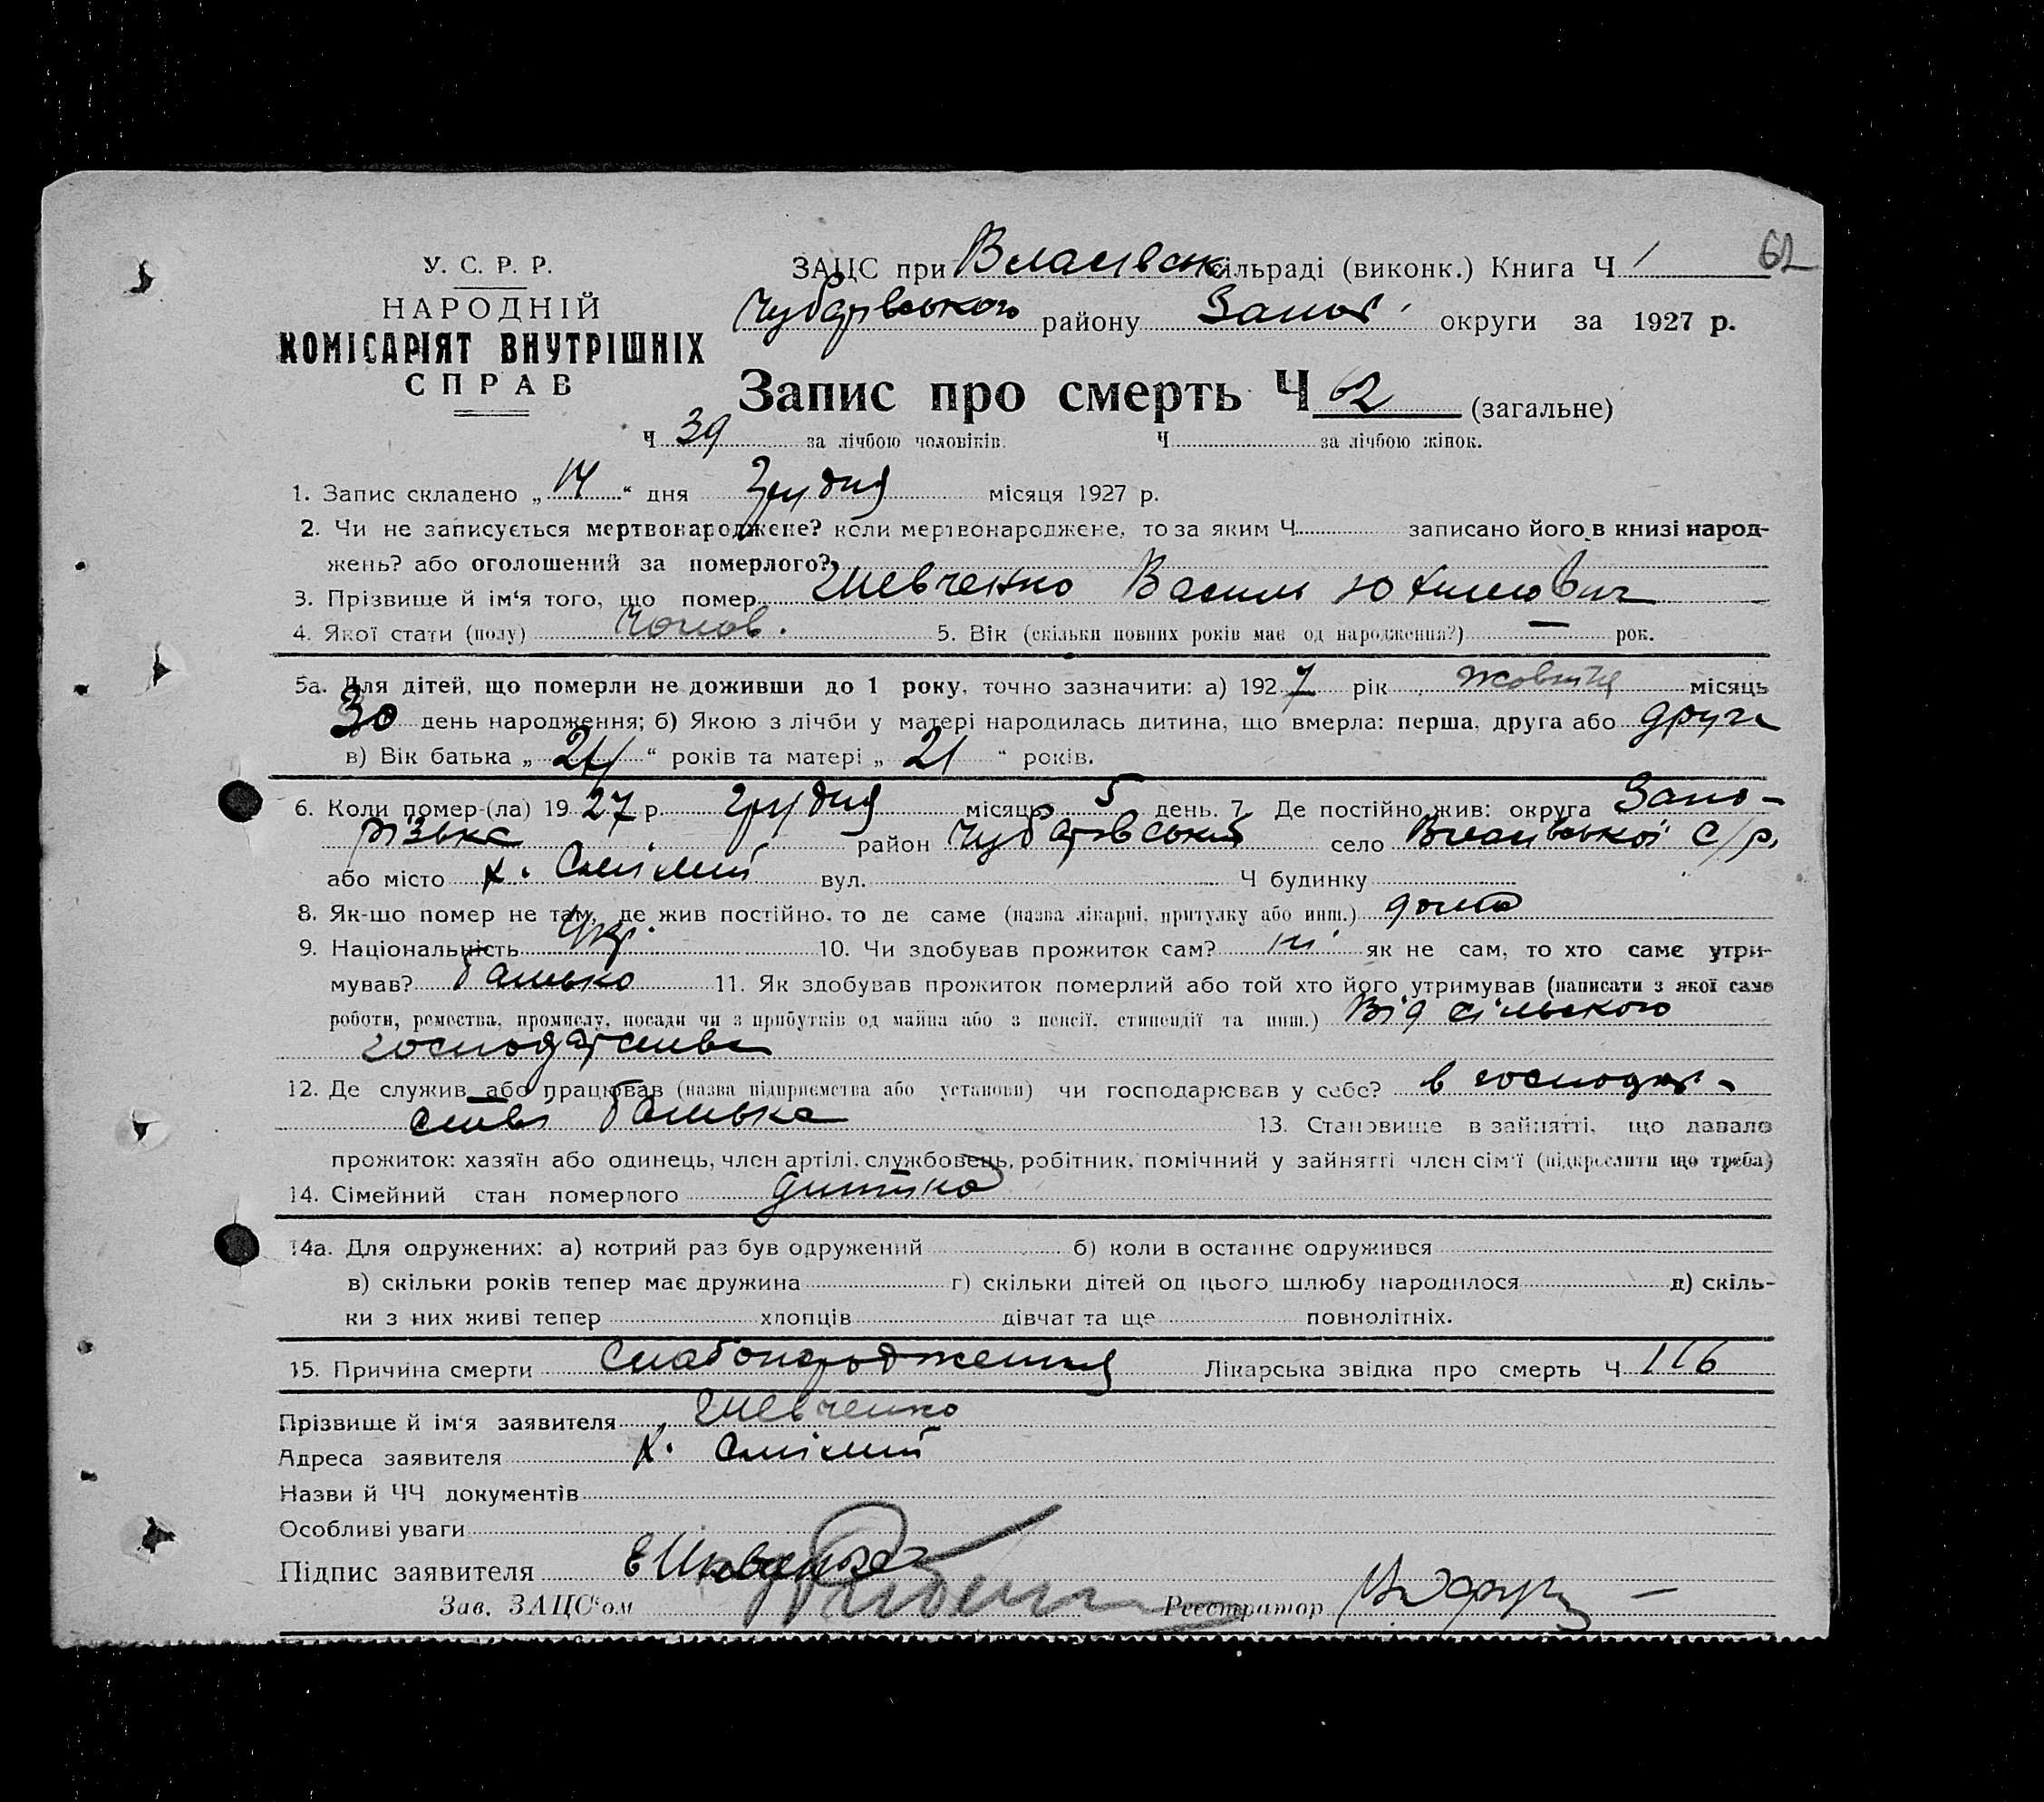 62
У. С. Р. Р.
НАРОДНІЙ
КОМІСАРІЯТ ВНУТРІШНІХ
СПРАВ
ЗАЦС при Власівск сільраді (виконк.) Книга Ч 1
Чубарівського району Запор. округи за 1927 р.
Запис про смерть Ч 62 (загальне)
Ч 39 за лічбою чоловіків. Ч за лічбою жінок.
1. Запис складено „ 14 “ дня Грудня місяця 1927 р.
2. Чи не записується мертвонароджене? коли мертвонароджене, то за яким Ч записано його в книзі народ-
жень? або оголошений за померлого?
3. Прізвище й ім‘я того, що помер Шевченко Василь Юхимович
4. Якої стати (полу) Чолов. 5. Вік (скільки повних років має од народження?) — рок.
5а. Для дітей, що померли не доживши до 1 року, точно зазначити: а) 1927 рік Жовтня місяць
30 день народження; б) Якою з лічби у матері народилась дитина, що вмерла: перша, друга або друга
в) Вік батька „ 24 “ років та матері „ 21 “ років.
6. Коли помер-(ла) 19 27 р. грудня місяць 5 день. 7. Де постійно жив: округа Запо-
різька район Чубарівський село Власівської с/р,
або місто х. вул. Ч будинку
8. Як-що помер не там, де жив постійно, то де саме (назва лікарні, притулку або инш.) дома
9. Національність Укр. 10. Чи здобував прожиток сам? ні як не сам, то хто саме утри-
мував? батько 11. Як здобував прожиток померлий або той хто його утримував (написати з якої саме
роботи, ремества, промислу, посади чи з прибутків од майна або з пенсії, стипендії та инш.) Від сільского
господарства
12. Де служив або працював (назва підприємства або установи) чи господарював у себе? в господар-
стві батька 13. Становище в зайнятті, що давало
прожиток: хазяїн або одинець, член артілі, службовець, робітник, помічний у зайнятті член сім‘ї (підкреслити що треба)
14. Сімейний стан померлого дитина
14а. Для одружених: а) котрий раз був одружений б) коли в останнє одружився
в) скільки років тепер має дружина г) скільки дітей од цього шлюбу народилося д) скіль-
ки з них живі тепер хлопців дівчат та ще повнолітніх.
15. Причина смерти Слабонародження Лікарська звідка про смерть Ч 116
Прізвище й ім‘я заявителя Шевченко
Адреса заявителя х.
Назви й ЧЧ документів
Особливі уваги
Підпис заявителя
Зав. ЗАЦС‘ом Реєстратор